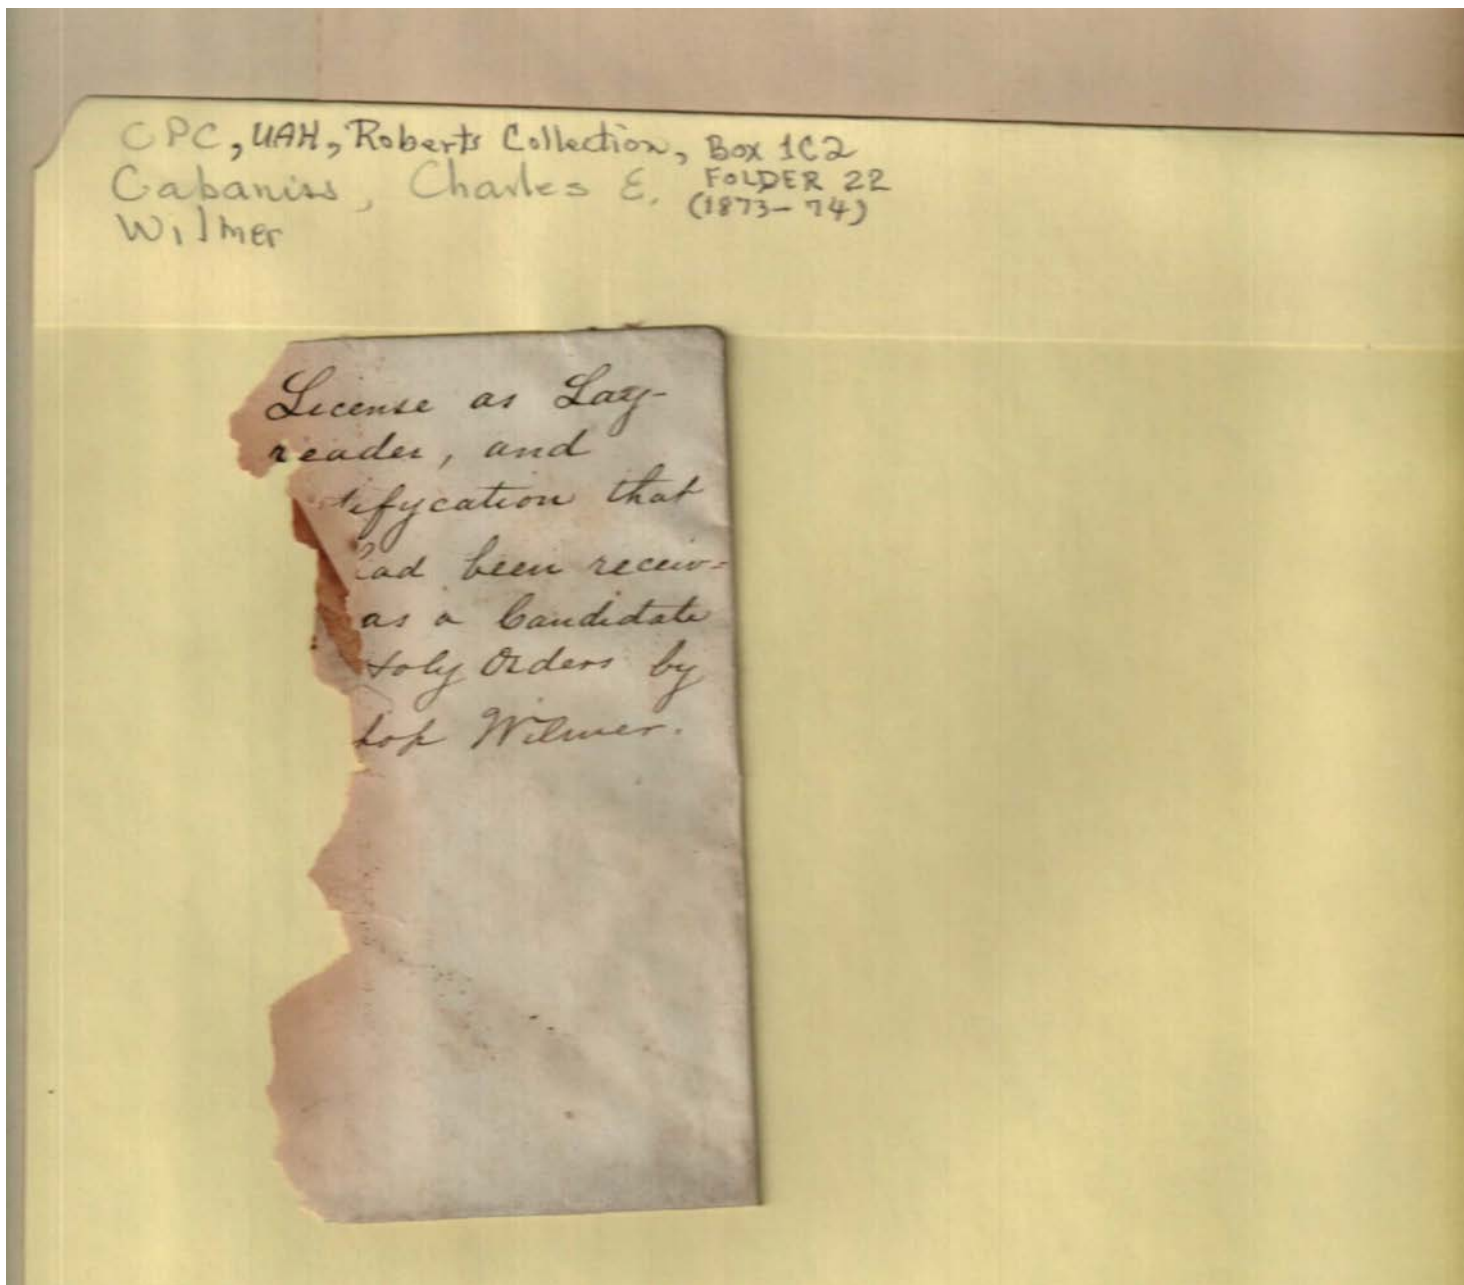 CPC, UAH, Roberts Collection, Box 1C2
Cabaniss, Charles E. FOLDER 22
(1873-74)
Wilmer
License as Lay-
reader, and
tifycation that
had been receiv=
as a Candidate
Holy Orders by
hop Wilmer.